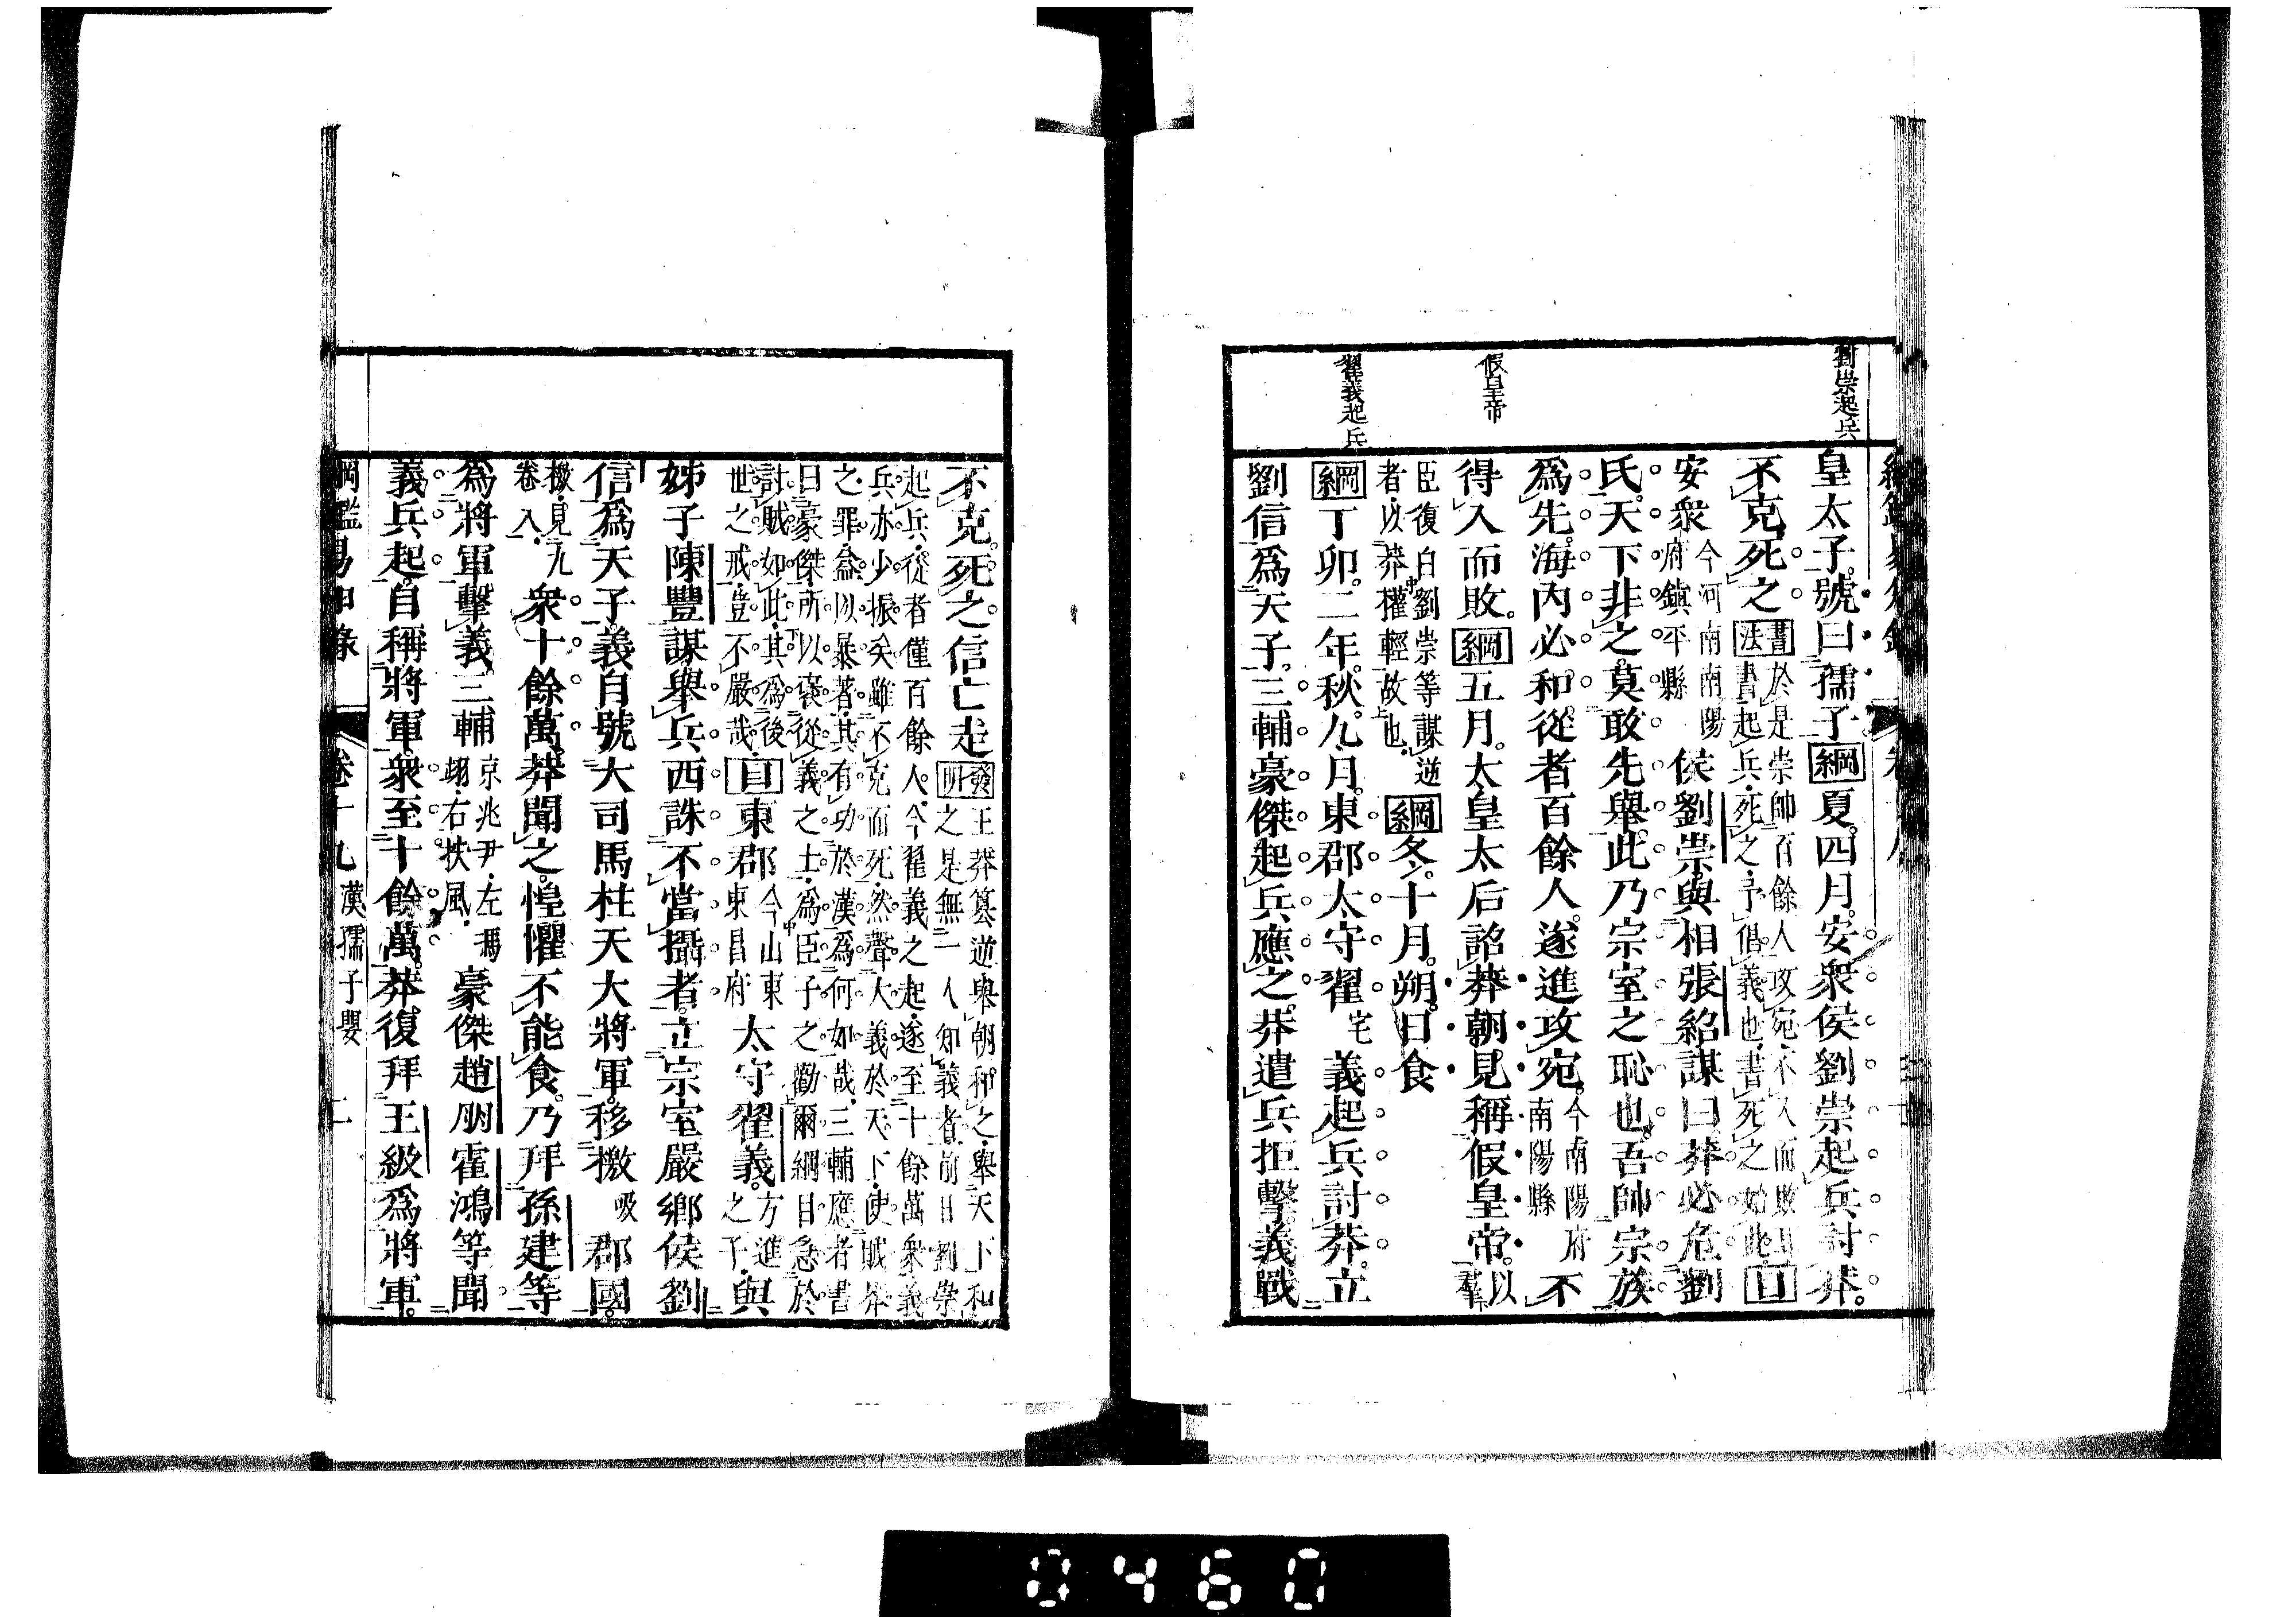 劉崇起兵
假皇帝
翟義起兵
皇太子號曰孺子綱夏四月安衆侯劉崇起兵討莽
不克死之書法於是崇帥百餘人攻宛不入而敗書起兵死之予倡義也書死之始此目
安衆今河南南陽府鎮平縣侯劉崇與相張紹謀曰莽必危劉
氏天下非之莫敢先舉此乃宗室之恥也吾帥宗族
爲先海內必和從者百餘人遂進攻宛今南陽府南陽縣不
得入而敗綱五月太皇太后詔莽朝見稱假皇帝以羣
臣復白劉崇等謀逆者以莽權輕故也綱冬十月朔日食
綱丁卯二年秋九月東郡太守翟宅義起兵討莽立
劉信爲天子三輔豪傑起兵應之莽遣兵拒擊義戰
不克死之信亡走發明王莽篡逆舉朝和之舉天下和之是無一人知義者前日劉崇
起兵從者僅百餘人今翟義之起遂至十餘萬衆義
兵亦少振矣雖不克而死然聲大義於天下使賊莽
之罪益以暴著其有功於漢爲何如哉三輔應者書
曰豪傑所以褒從義之士爲臣子之勸爾綱目急於
討賊如此其爲後世之戒豈不嚴哉目東郡今山東東昌府太守翟義方進之子與
姊子陳豐謀舉兵西誅不當攝者立宗室嚴鄉侯劉
信爲天子義自號大司馬柱天大將軍移檄吸郡國
檄見九卷入衆十餘萬莽聞之惶懼不能食乃拜孫建等
爲將軍擊義三輔京兆尹左馮翊右扶風豪傑趙朋霍鴻等聞
義兵起自稱將軍衆至十餘萬莽復拜王級爲將軍
綱鑑易知錄 卷十九 漢孺子嬰 二
0460